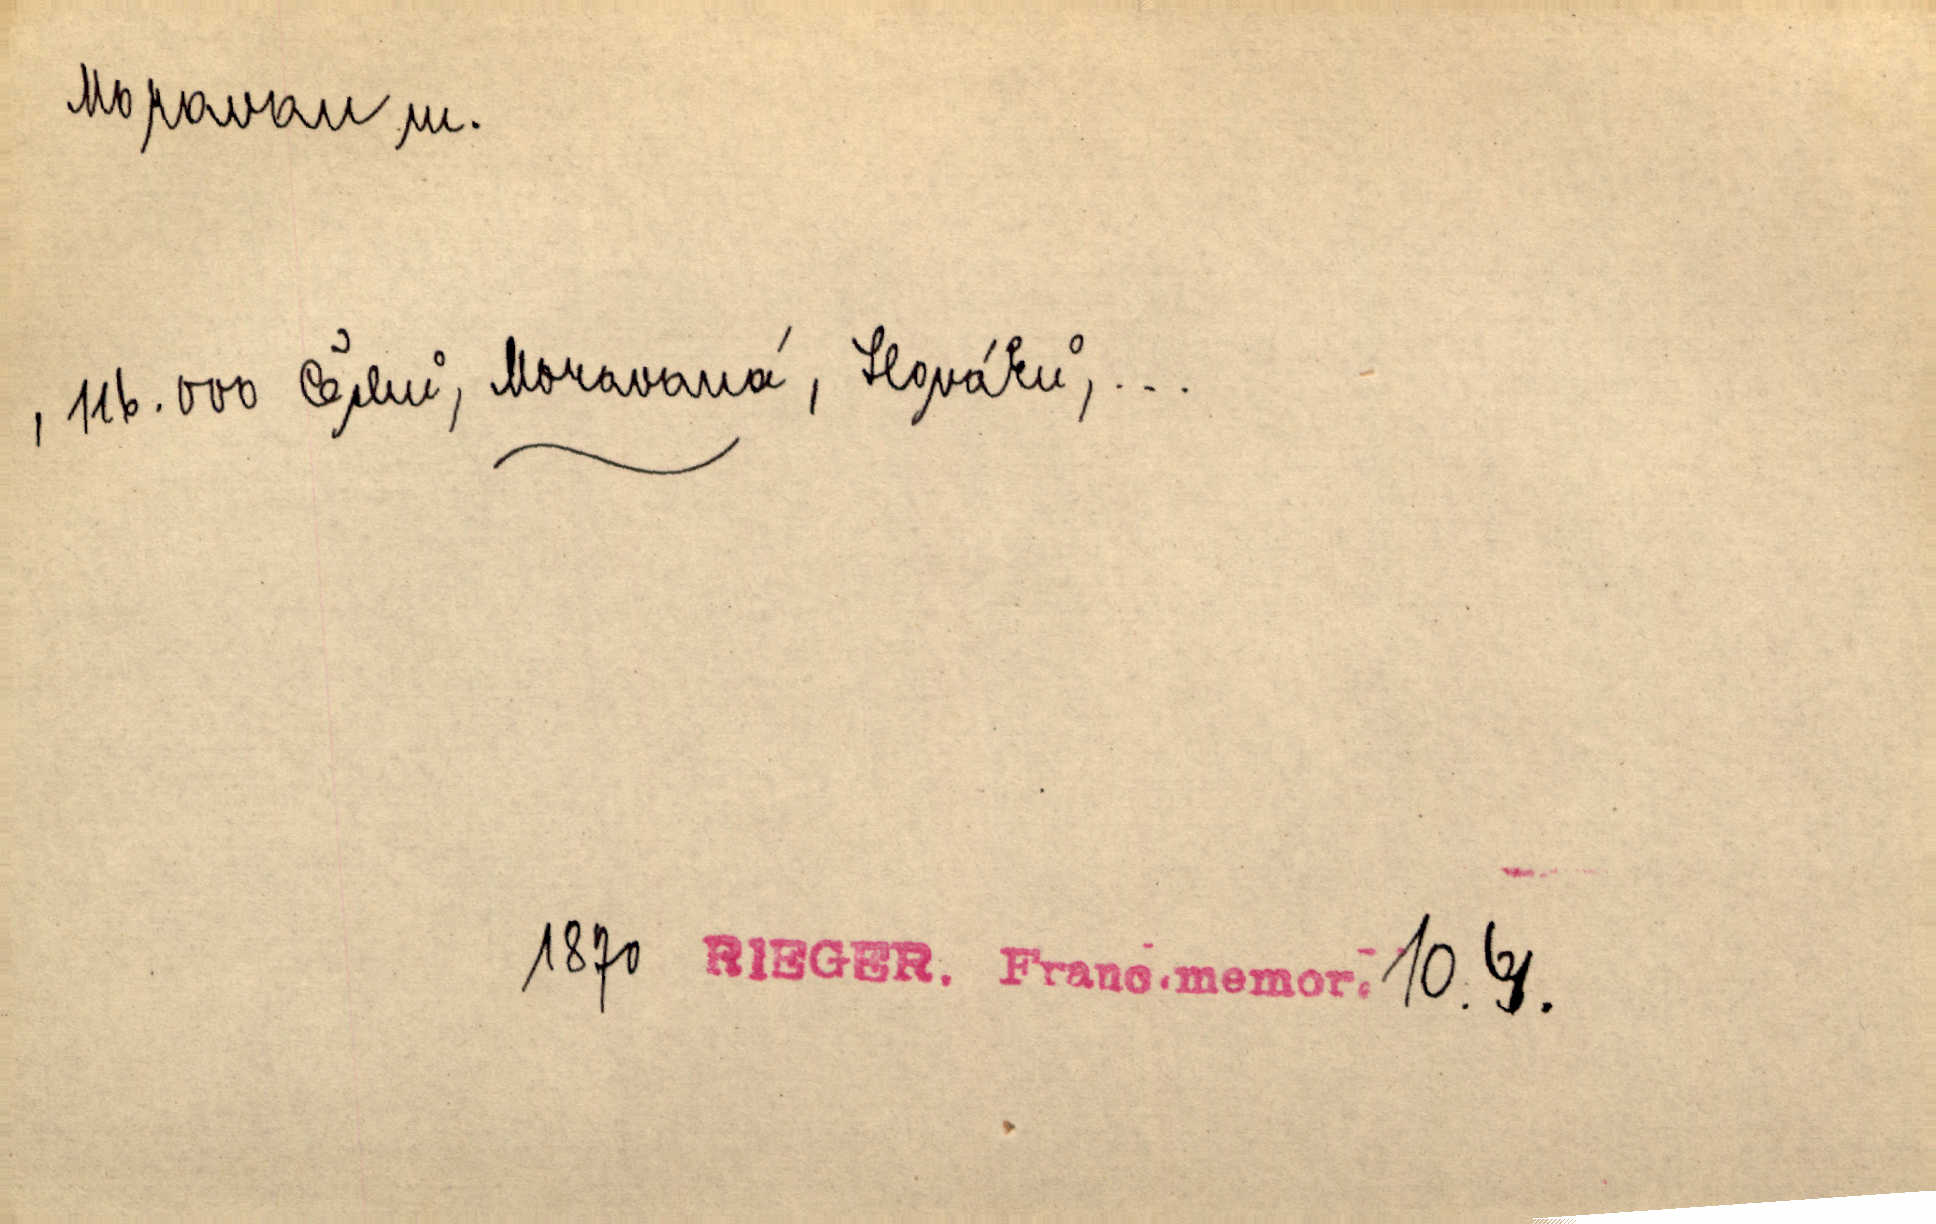 Moravan m.
, 116.000 Čechů, Moravanů, Slováků, ...
1870 RIEGER. Franc.memor. 10.